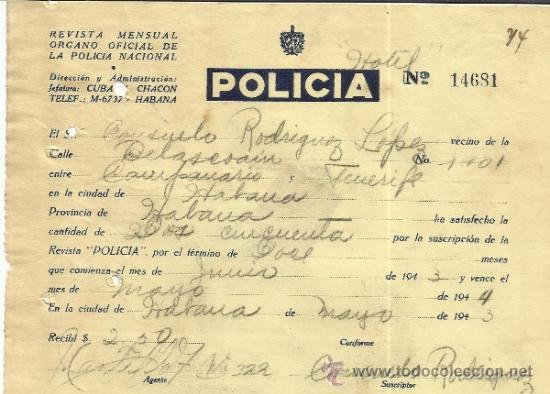 REVISTA MENSUAL
ORGANO OFICIAL DE
LA POLICIA NACIONAL
Dirección y Administración:
Jefatura: CUBA CHACON
TELEF.: M-6737 - HABANA
"Hotel"
74
POLICIA
Nº 14681
El Sr. Consuelo Rodriguez Lopez vecino de la
Calle Belascoain No. 1101
entre Campanario y Tenerife
en la ciudad de Habana
Provincia de Habana ha satisfecho la
cantidad de Dos cincuenta por la suscripción de la
Revista "POLICIA", por el término de Doce meses
que comienza el mes de Junio de 1943 y vence el
mes de Mayo de 1944
En la ciudad de Habana de mayo de 1943
Recibí $ 2.50 Conforme
No 322 Consuelo Rodriguez
Agente Suscriptor
www.todocoleccion.net